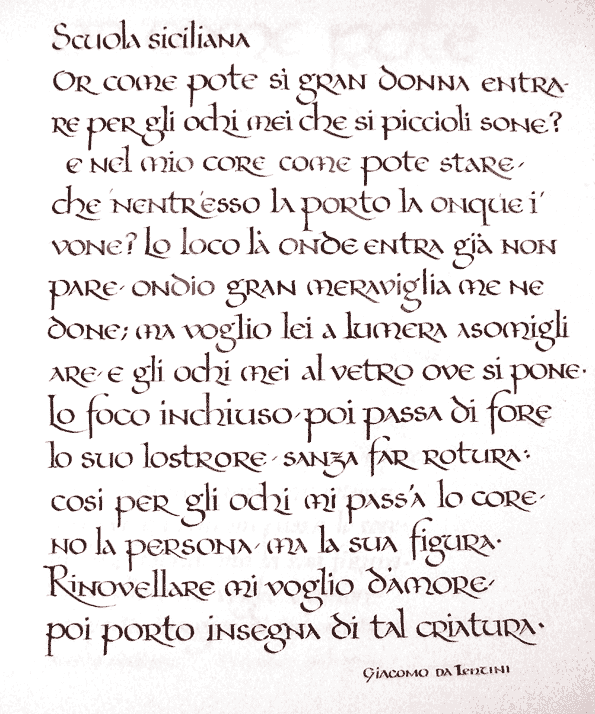 Scuola siciliana
Or come pote si gran donna entra·
re per gli ochi mei che si piccioli sone?
e nel mio core come pote stare·
che 'nentr'esso la porto la onque i'
vone? Lo loco là onde entra già non
pare· ondio gran meraviglia me ne
done; ma voglio lei a lumera asomigli
are· e gli ochi mei al vetro ove si pone·
Lo foco inchiuso· poi passa di fore
lo suo lostrore· sanza far rotura·
cosi per gli ochi mi pass'a lo core·
no la persona· ma la sua figura·
Rinovellare mi voglio d'amore·
poi porto insegna di tal criatura·
Giacomo da Lentini